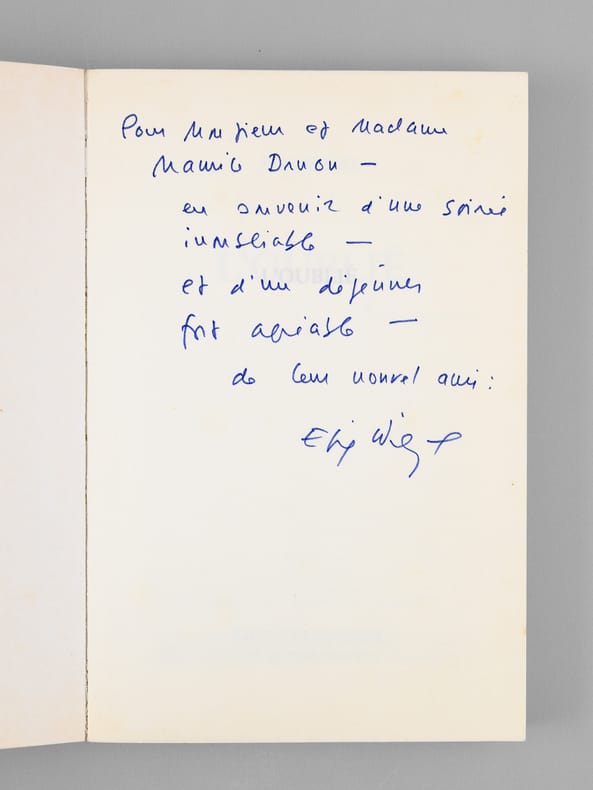 Pour Monsieur et Madame
Maurice Druon —
en souvenir d'une soirée
inoubliable —
et d'un déjeuner
fort agréable —
de leur nouvel ami :
Elie Wiesel
L'OUBLIÉ